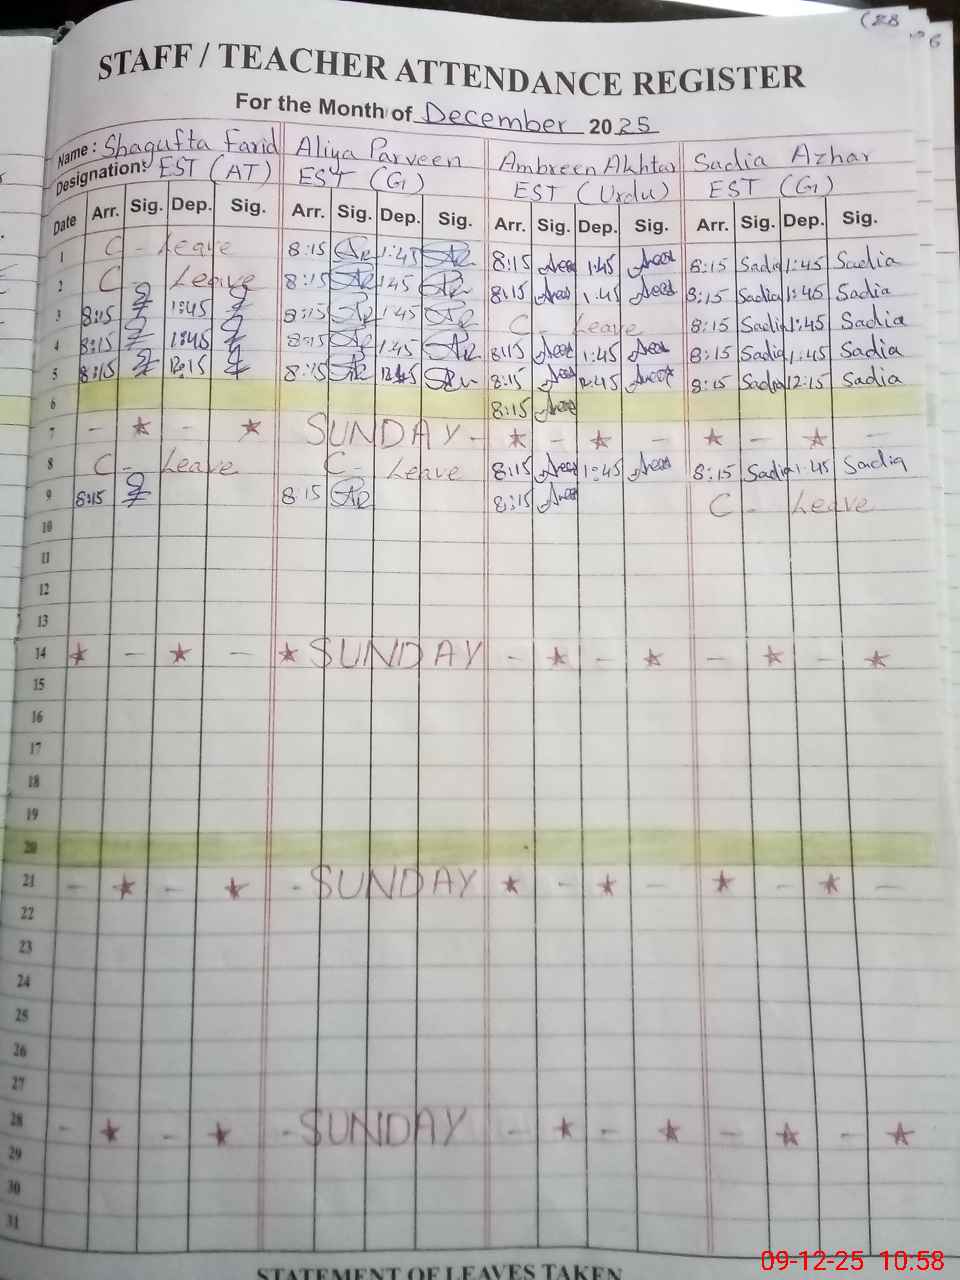 (28
STAFF / TEACHER ATTENDANCE REGISTER
For the Month of December 2025
Name : Shagufta Farid Aliya Parveen Ambreen Akhtar Sadia Azhar
Designation: EST (AT) EST (G) EST (Urdu) EST (G)
Date Arr. Sig. Dep. Sig. Arr. Sig. Dep. Sig. Arr. Sig. Dep. Sig. Arr. Sig. Dep. Sig.
1 C - Leave 8:15 1:45 8:15 1:45 8:15 Sadia 1:45 Sadia
2 C Leave 8:15 1:45 8:15 1:45 8:15 Sadia 1:45 Sadia
3 8:15 1:45 8:15 1:45 C - Leave 8:15 Sadia 1:45 Sadia
4 8:15 1:45 8:15 1:45 8:15 1:45 8:15 Sadia 1:45 Sadia
5 8:15 12:15 8:15 8:15 8:15 Sadia 12:15 Sadia
6 8:15
7 - ★ ★ SUNDAY - ★ - ★ - ★ - ★ -
8 C - Leave C - Leave 8:15 1:45 8:15 Sadia 1:45 Sadia
9 8:15 8:15 8:15 C - Leave
10
11
12
13
14 ★ - ★ - ★ SUNDAY - ★ - ★ - ★ - ★
15
16
17
18
19
20
21 - ★ - ★ - SUNDAY ★ - ★ - ★ - ★ -
22
23
24
25
26
27
28 - ★ - ★ - SUNDAY - ★ - ★ - ★ - ★
29
30
31
STATEMENT OF LEAVES TAKEN
09-12-25 10:58